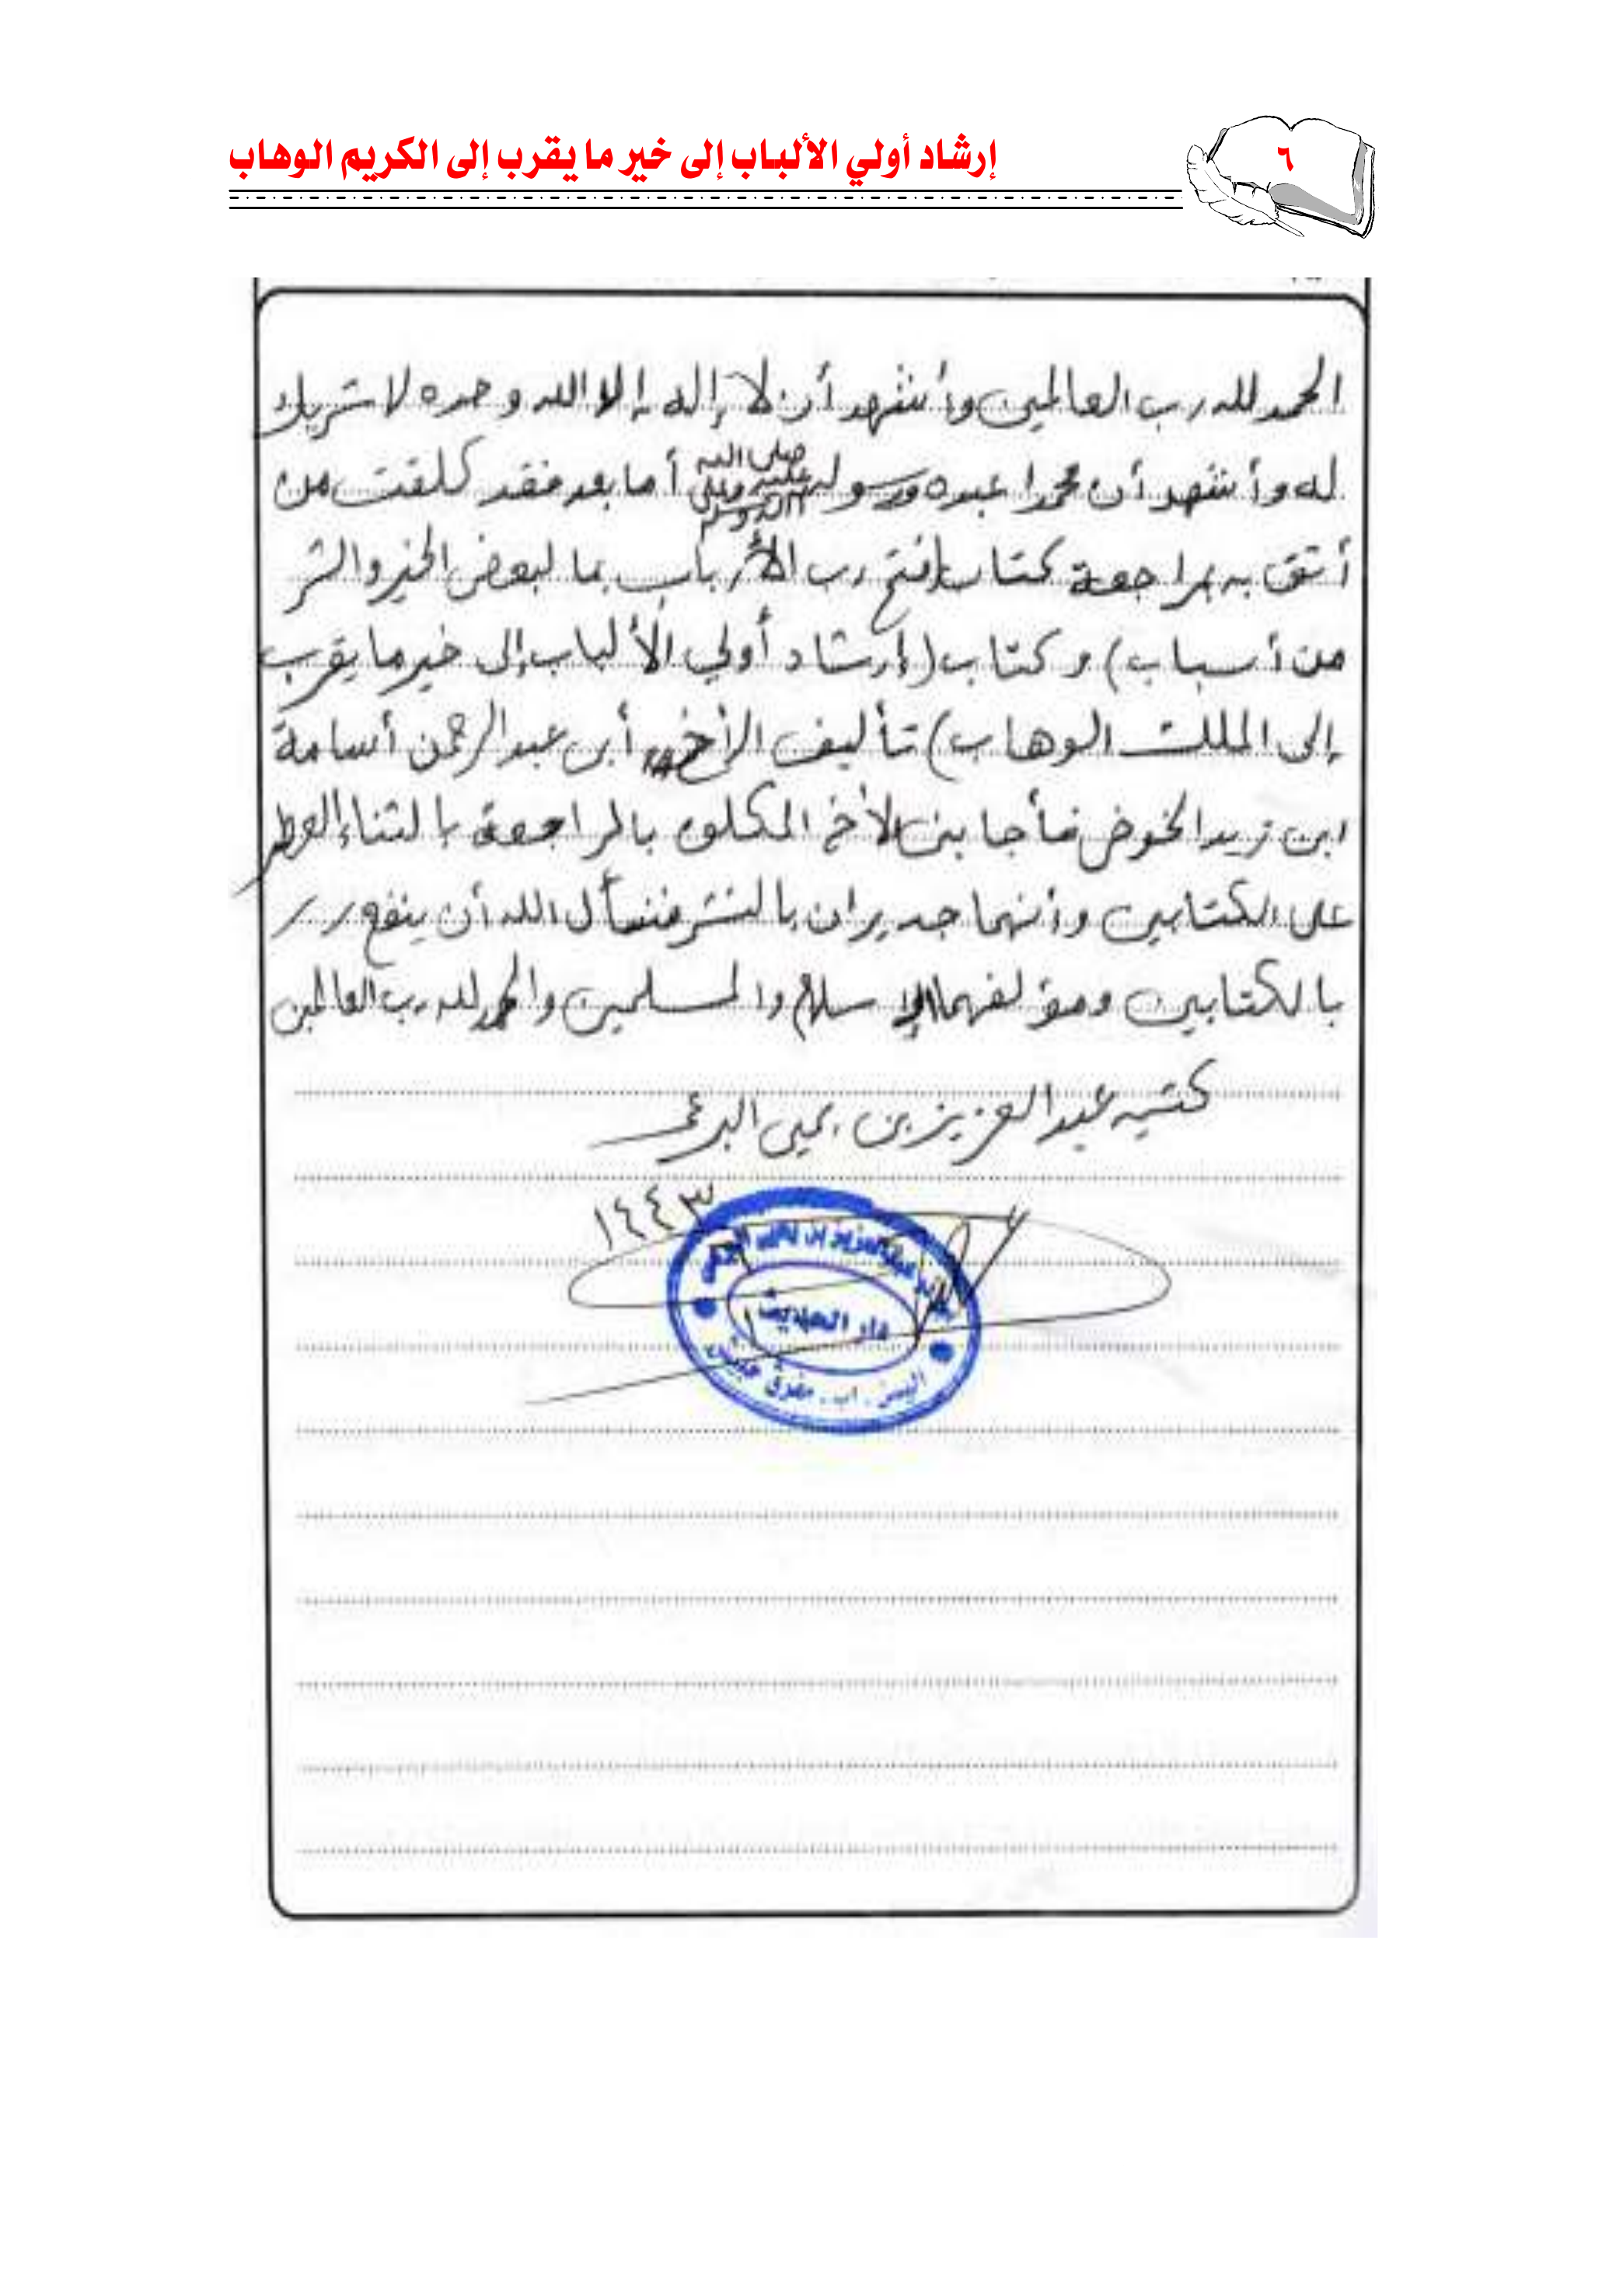 ٦
إرشاد أولي الألباب إلى خير ما يقرب إلى الكريم الوهاب
الحمد لله رب العالمين وأشهد أن لا إله إلا الله وحده لا شريك
له وأشهد أن محمدا عبده ورسوله صلى الله عليه وعلى آله وسلم أما بعد فقد كلفت من
أثق به بمراجعة كتاب (فتح رب الأرباب بما لبعض الخير والشر
من أسباب) وكتاب (إرشاد أولي الألباب إلى خير ما يقرب
إلى الملك الوهاب) تأليف الأخ أبن عبد الرحمن أسامة
ابن زيد الخوض فأجابني الأخ المكلف بالمراجعة بالثناء العطر
على الكتابين وأنهما جديران بالنشر فنسأل الله أن ينفع
بالكتابين ومؤلفهما الإسلام والمسلمين والحمد لله رب العالمين
كتبه عبد العزيز بن يحيى البرعي
١٤٤٣
عبدالعزيز بن يحيى البرعي
دار الحديث
اليمن . اب . مفرق حبيش